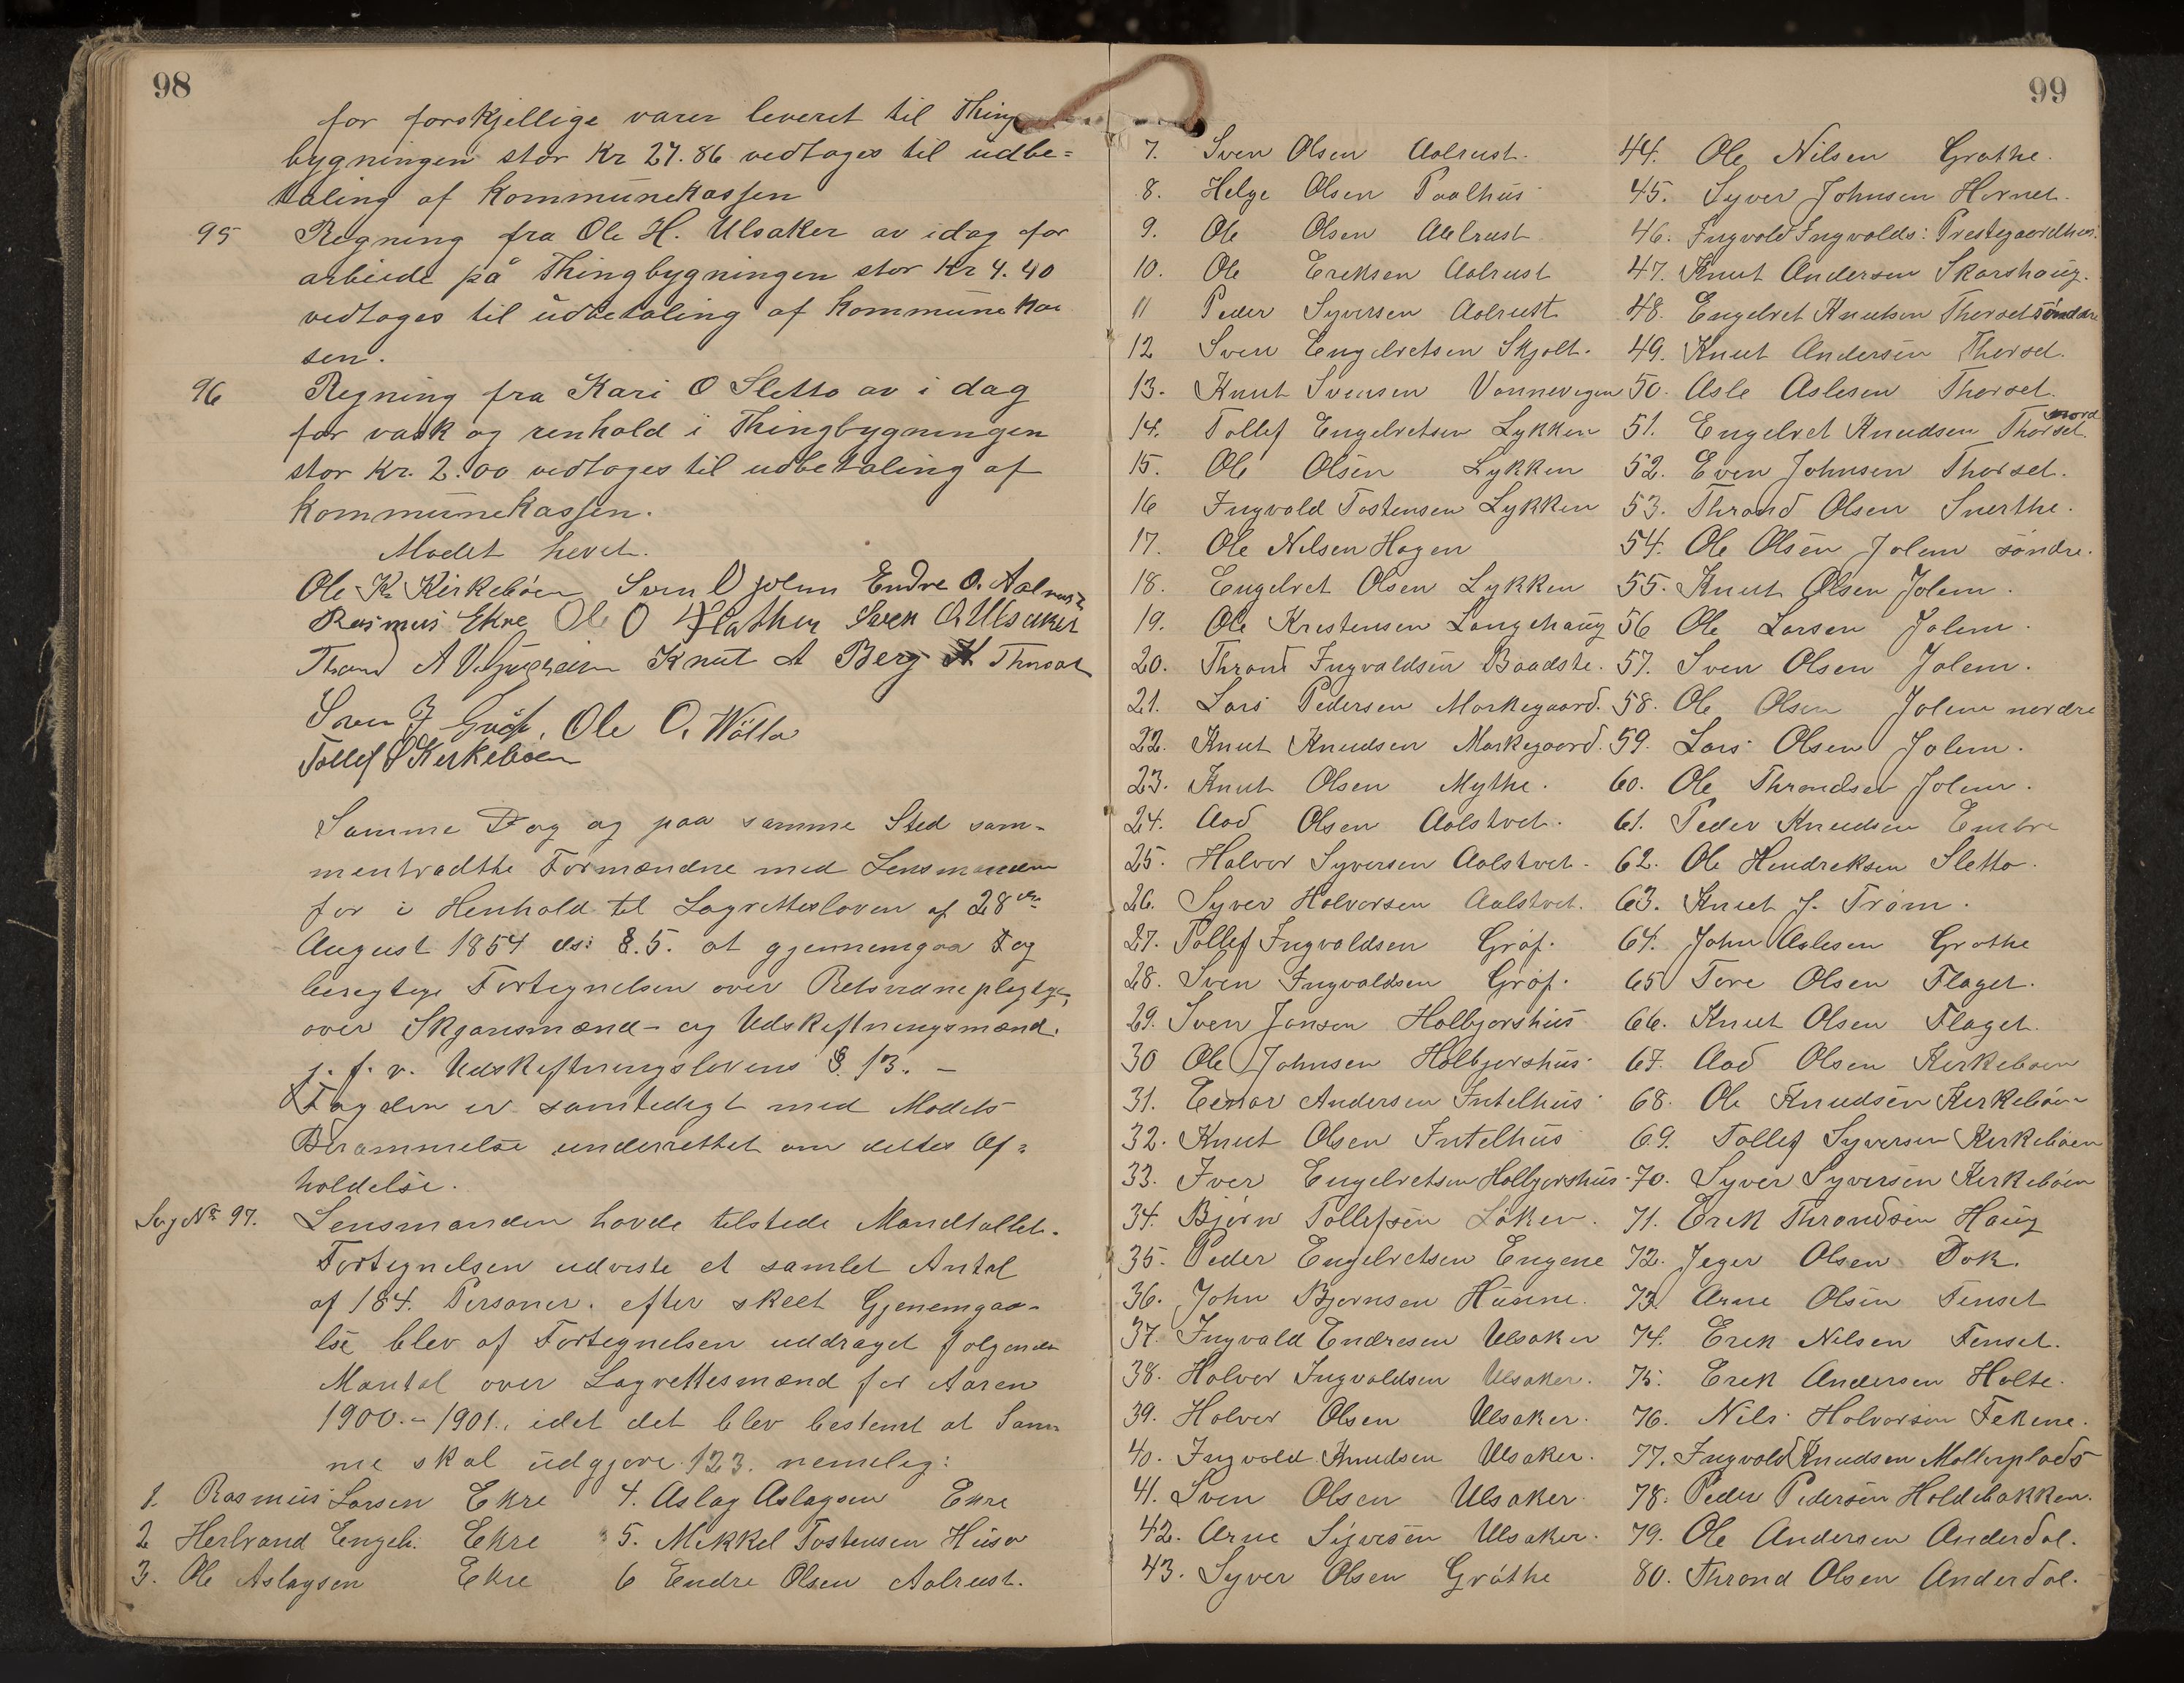 98
for forskjellige varer leveret til Thing
bygningen stor Kr 27.86 vedtages til udbe=
taling af Kommunekassen
95 Regning fra Ole H. Ulsaker av idag for
arbeide på Thingbygningen stor Kr 4.40
vedtages til udbetaling af Kommunekas
sen.
96 Regning fra Kari O Sletto av i dag
for vask og renhold i Thingbygningen
stor Kr. 2.00 vedtages til udbetaling af
Kommunekassen.
Mødet hevet.
Ole K. Kirkebøen Sven O Jolem Endre O. Aalrust
Rasmus Ekre Ole O Flathen Sven O Ulsaker
Thrond A Knut A Berg K Thorset
Sven I Grøf. Ole O. Wøllo
Tollef S Kirkebøen
Samme Dag og paa samme Sted sam-
mentraadte Formændne med Lensmanden
for i Henhold til Lagretteloven af 28de
August 1854 dss §. 5. at gjennemgaa og
berigtige Fortegnelsen over Retsvidnepligtige,
over Skjønsmænd- og Udskiftningsmænd.
j. f. r. Udskiftningslovens §. 13. –
Fogden er samtidigt med Mødets
Berammelse underrettet om dettes Af=
holdelse.
Sag No 97. Lensmanden havde tilstede Mandtallet.
Fortegnelsen udviste et samlet Antal
af 184. Personer. efter skeet Gjenemgaa-
else blev af Fortegnelsen uddraget følgende
Mantal over Lagrettesmænd for Aaren
1900.-1901., idet det blev bestemt at Sam
me skal udgjøre 123. nemelig:
1. Rasmus Larsen Ekre 4. Aslag Aslagsen Ekre
2 Herbrand Engeb. Ekre 5. Mikkel Tostensen Huso
3. Ole Aslagsen Ekre 6 Endre Olsen Aalrust.
99
7. Sven Olsen Aalrust.
8. Helge Olsen Paalhus
9. Ole Olsen Aalrust
10. Ole Eriksen Aalrust
11 Peder Syversen Aalrust
12 Sven Engebretsen Skjolt.
13. Knut Svensen Vannevegen
14. Tollef Engebretsen Lykken
15. Ole Olsen Lykken
16 Ingvald Tostensen Lykken
17. Ole Nilsen Hagen
18. Engebret Olsen Lykken
19. Ole Kristensen Langehaug
20. Thrond Ingvaldsen Baadste.
21. Lars Pedersen Markegaard.
22. Knut Knudsen Markegaard.
23. Knut Olsen Mythe.
24. Aad Olsen Aalstvet.
25. Halvor Syversen Aalstvet.
26. Syver Halvorsen Aalstvet.
27. Tollef Ingvaldsen Grøf.
28. Sven Ingvaldsen Grøf.
29. Sven Jansen Halbjørshus
30 Ole Johnsen Halbjørshus.
31. Einar Andersen Intelhus
32. Knut Olsen Intelhus
33. Iver Engebretsen Halbjørshus.
34. Bjørn Tollefsen Løken.
35. Peder Engebretsen Engene
36. John Bjørnsen Hunne.
37. Ingvald Endresen Ulsaker
38. Halvor Ingvaldsen Ulsaker.
39. Halvor Olsen Ulsaker.
40. Ingvald Knudsen Ulsaker.
41. Sven Olsen Ulsaker.
42. Arne Syversen Ulsaker.
43. Syver Olsen Grøthe
44. Ole Nilsen Grøthe.
45. Syver Johnsen Hornet.
46. Ingvald Ingvalds: Prestegaardhus.
47. Knut Andersen Skarshaug.
48. Engebret Knutsen Thorset søndre
49. Knut Andersen Thorset.
50. Asle Aslesen Thorset.
51. Engebret Knudsen Thorset nord
52. Even Johnsen Thorset.
53. Thrond Olsen Snerthe.
54. Ole Olsen Jolem søndre.
55. Knut Olsen Jolem.
56 Ole Larsen Jolem.
57. Sven Olsen Jolem.
58. Ole Olsen Jolem nordre
59. Lars Olsen Jolem.
60. Ole Throndsen Jolem.
61. Peder Knudsen Embre
62. Ole Hendriksen Sletto.
63. Knut J. Trøm.
64. John Aslesen Grøthe
65 Tore Olsen Flaget.
66. Knut Olsen Flaget.
67. Aad Olsen Kirkebøen
68. Ole Knudsen Kirkebøen
69. Tollef Syversen Kirkebøen
70. Syver Syversen Kirkebøen
71. Erik Throndsen Haug
72. Jeger Olsen Dok.
73. Arne Olsen Tenset
74. Erik Nilsen Tenset.
75. Erik Andersen Holte.
76. Nils Halvorsen Fekene.
77. Ingvald Knudsen Møllerplads
78. Peder Pedersen Holdebakken.
79. Ole Andersen Anderdal.
80. Thrond Olsen Anderdal.